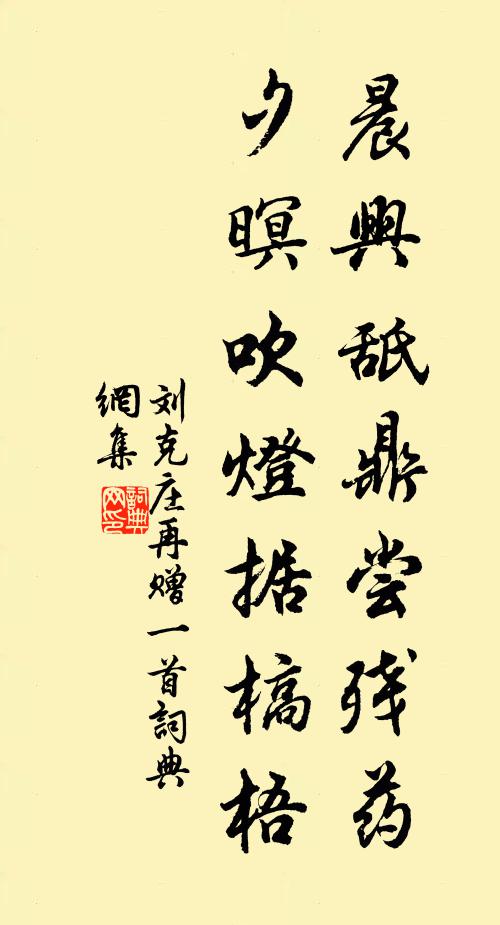 晨興舐鼎尝残药
夕暝吹燈据槁梧
刘克庄再赠一首詞典
網集
詞典网印